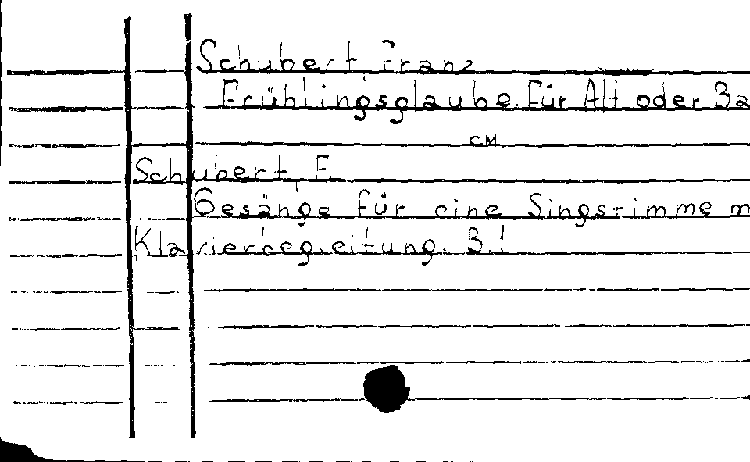 Schubert Franz
Frühlingsglaube. Für Alt oder Ba
CM
Schubert, F.
Gesänge für eine Singstimme m
Klavierbegleitung. B.1